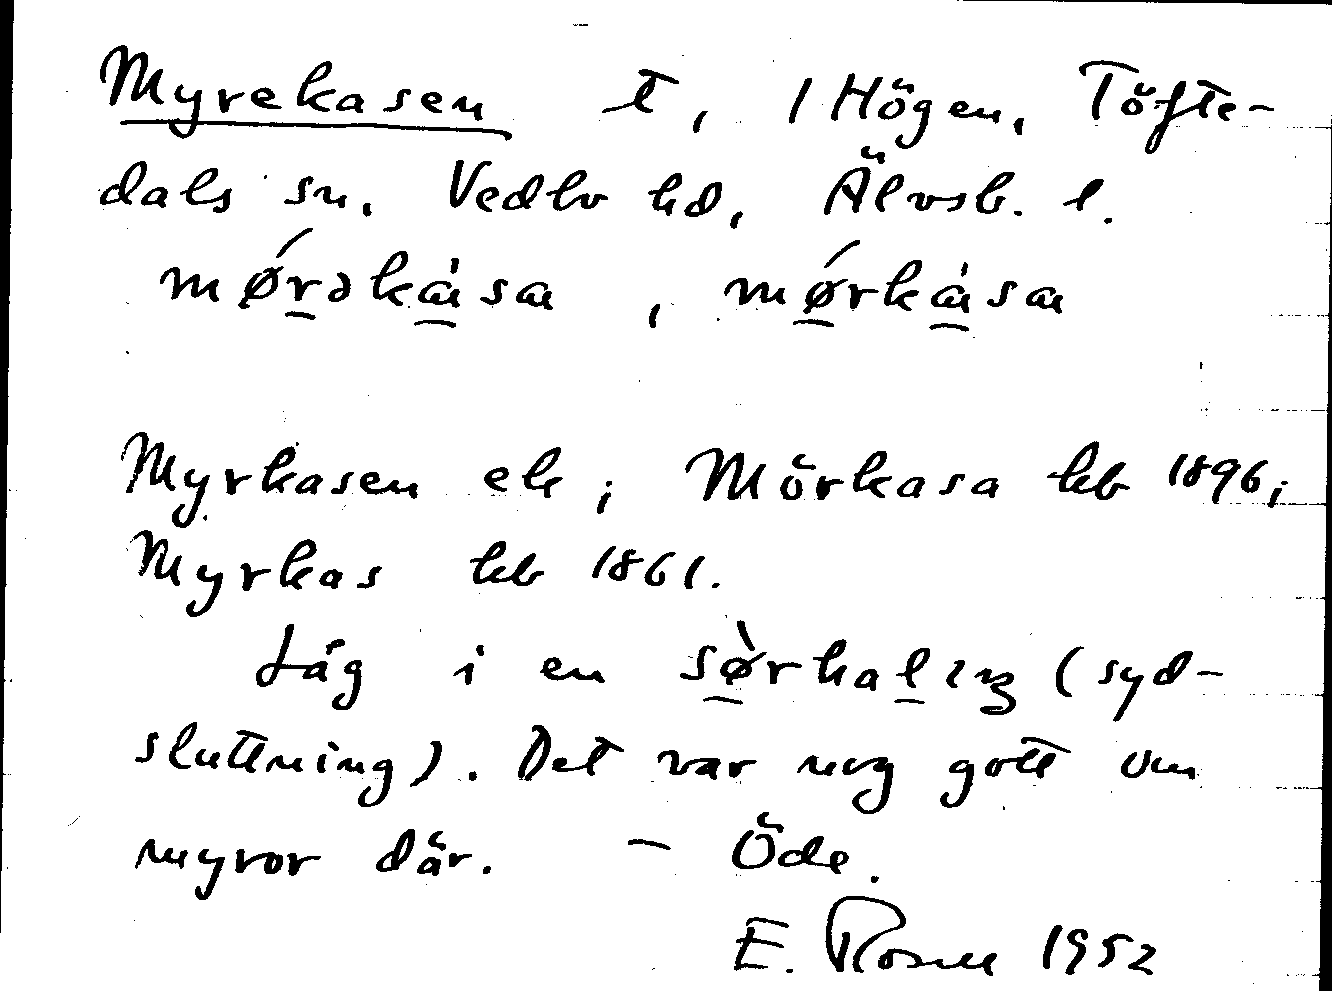 Myrekasen t, 1 Högen, Töfte-
dals sn. Vedbo hd, Älvsb. l.
mǿrəkȧsa , mǿrkȧsa
Myrkasen ek ; Mörkasa kb 1896;
Myrkas kb 1861.
Låg i en sø̀rhalıŋ (syd-
sluttning). Det var nog gott om
myror där. – Öde.
E. Rosell 1952